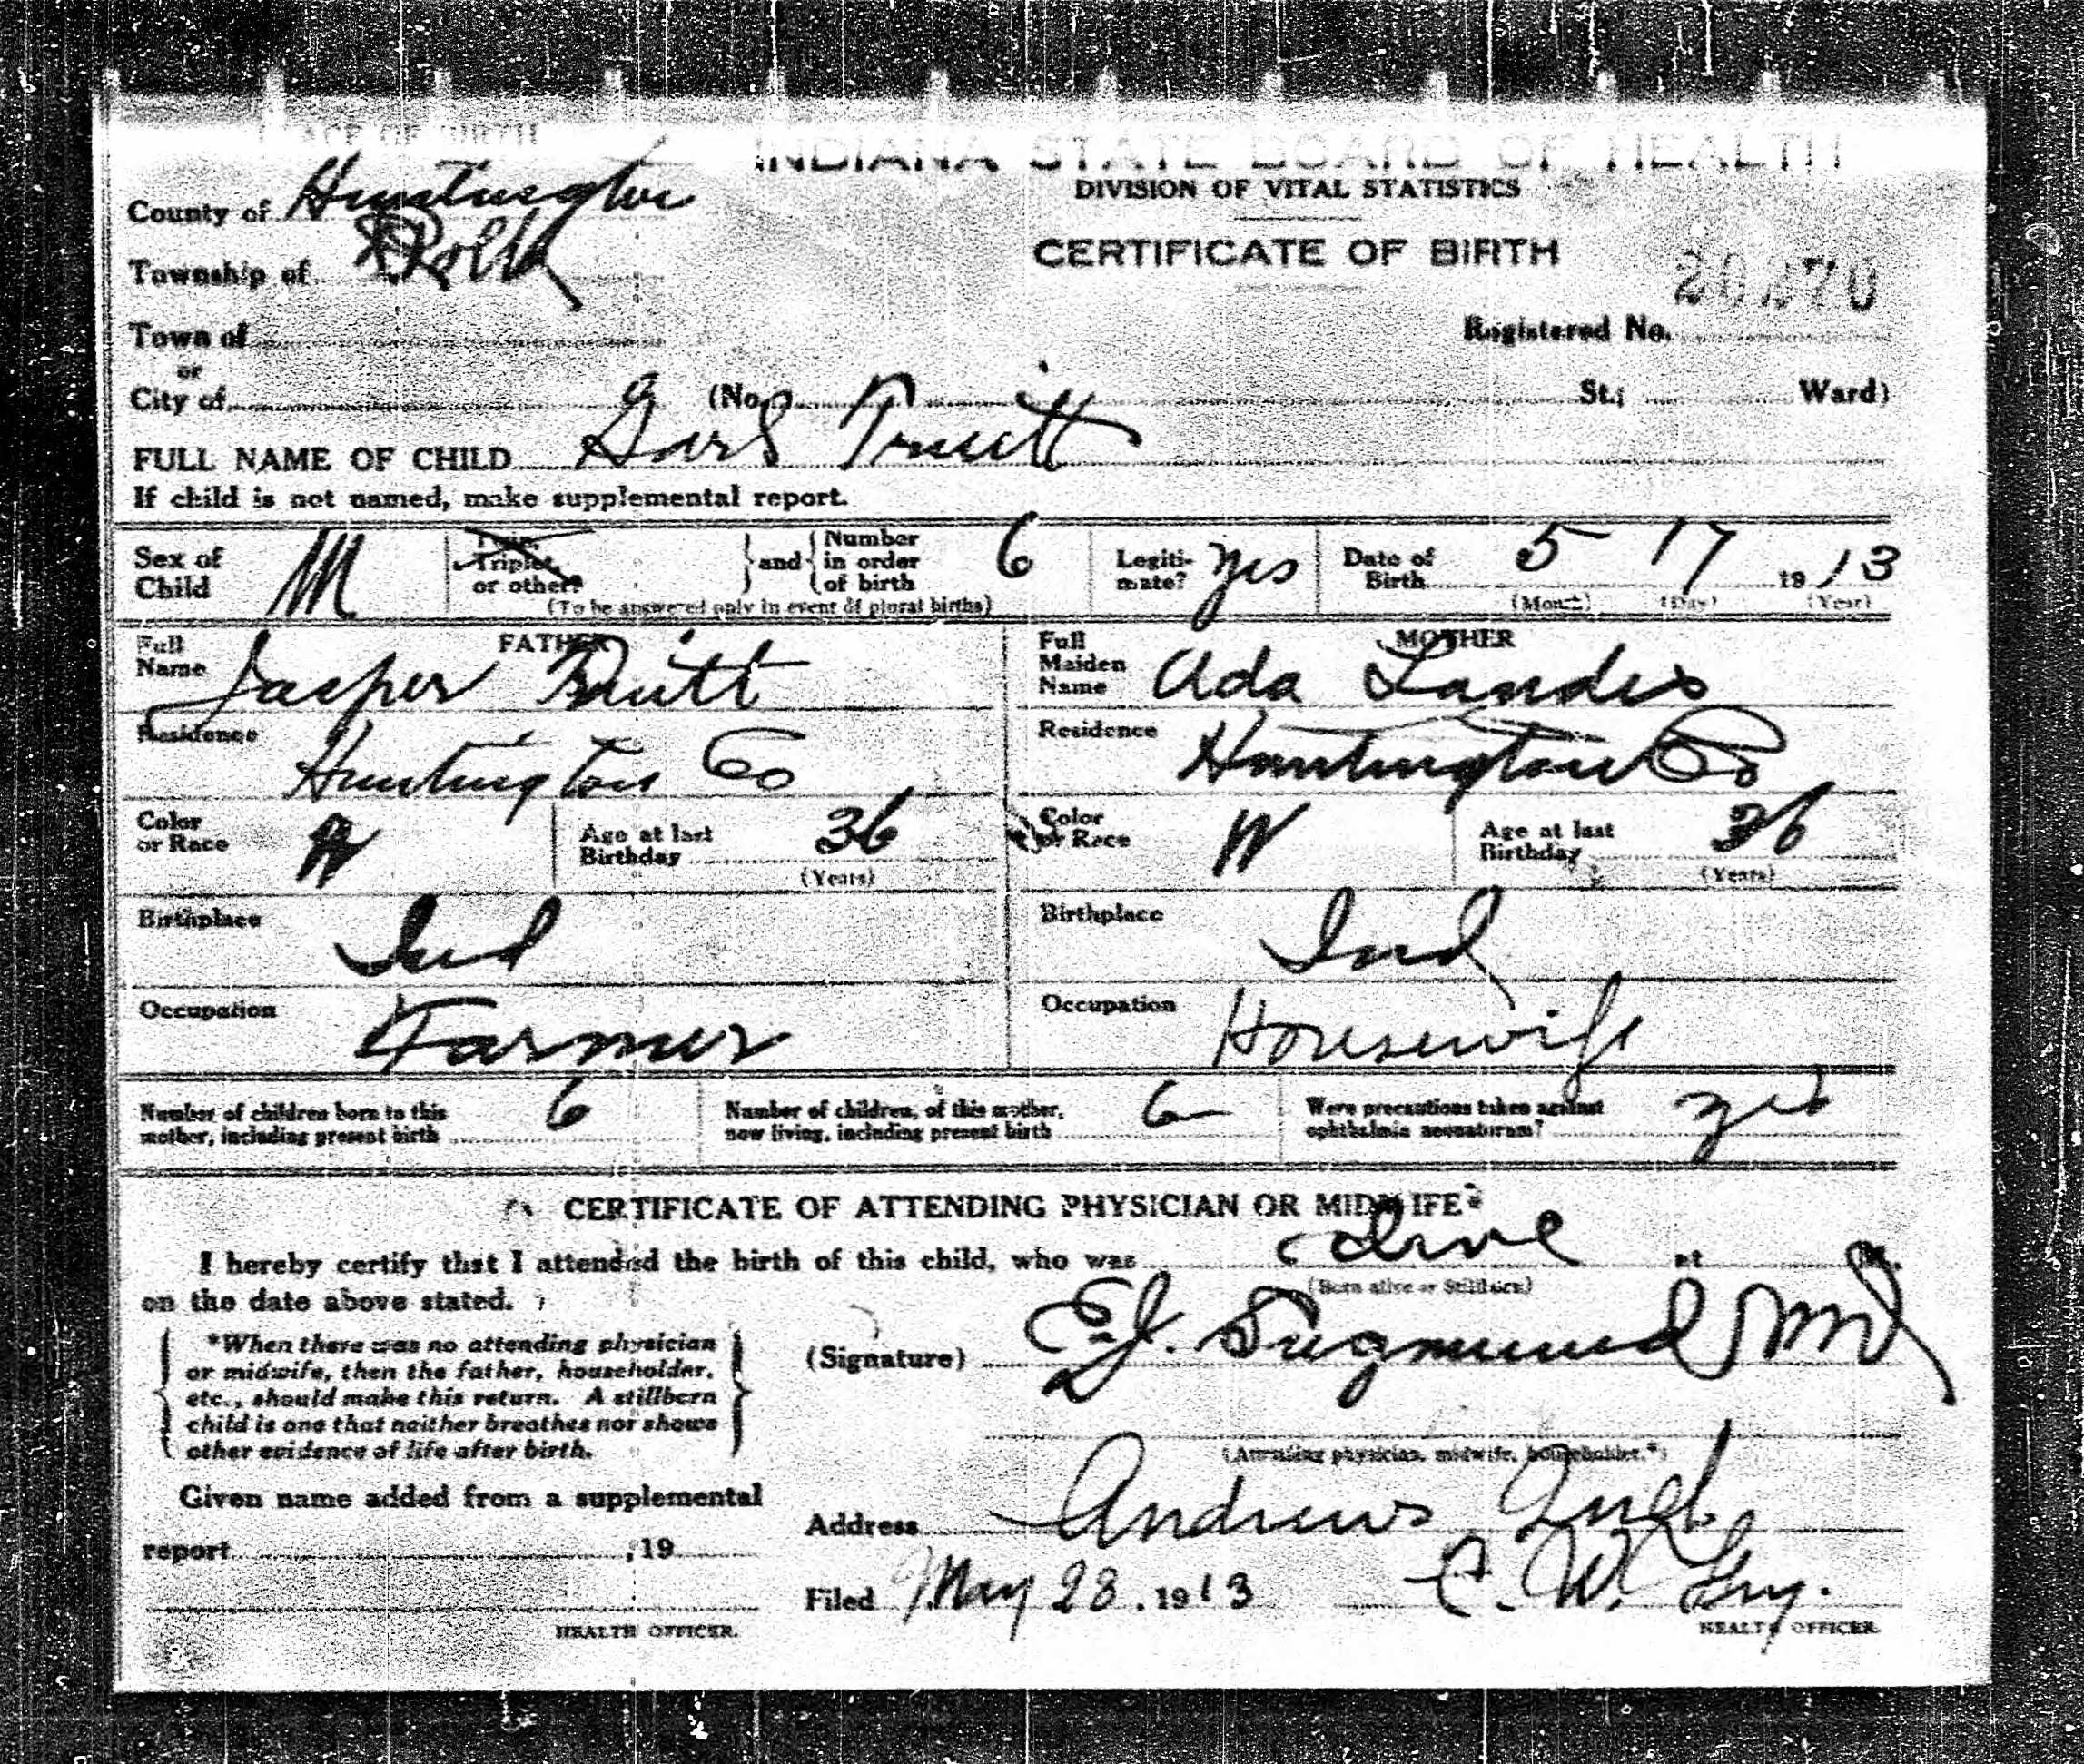 PLACE OF BIRTH
INDIANA STATE BOARD OF HEALTH
DIVISION OF VITAL STATISTICS
CERTIFICATE OF BIRTH
County of Huntington
Township of Polk
Town of
or
City of (No. St.; Ward)
Registered No.
FULL NAME OF CHILD Truitt
If child is not named, make supplemental report.
Sex of Child M Twin, Triplet, or other? and Number in order of birth 6 Legitimate? yes Date of Birth 5 17 1913
(To be answered only in event of plural births) (Month) (Day) (Year)
FATHER
Full Name Jasper Truitt
Residence Huntington Co
Color or Race W Age at last Birthday 36 (Years)
Birthplace Ind
Occupation Farmer
MOTHER
Full Maiden Name Ada Landis
Residence Huntington Co
Color or Race W Age at last Birthday 36 (Years)
Birthplace Ind
Occupation Housewife
Number of children born to this mother, including present birth 6
Number of children, of this mother, now living, including present birth 6
Were precautions taken against ophthalmia neonatorum? yes
CERTIFICATE OF ATTENDING PHYSICIAN OR MIDWIFE*
I hereby certify that I attended the birth of this child, who was alive at M.
(Born alive or Stillborn)
on the date above stated.
*When there was no attending physician
or midwife, then the father, householder,
etc., should make this return. A stillborn
child is one that neither breathes nor shows
other evidence of life after birth.
(Signature) MD
(Attending physician, midwife, householder.*)
Given name added from a supplemental
report , 19
HEALTH OFFICER.
Address Andrews Ind.
Filed May 28, 1913 C. W. Fry.
HEALTH OFFICER.